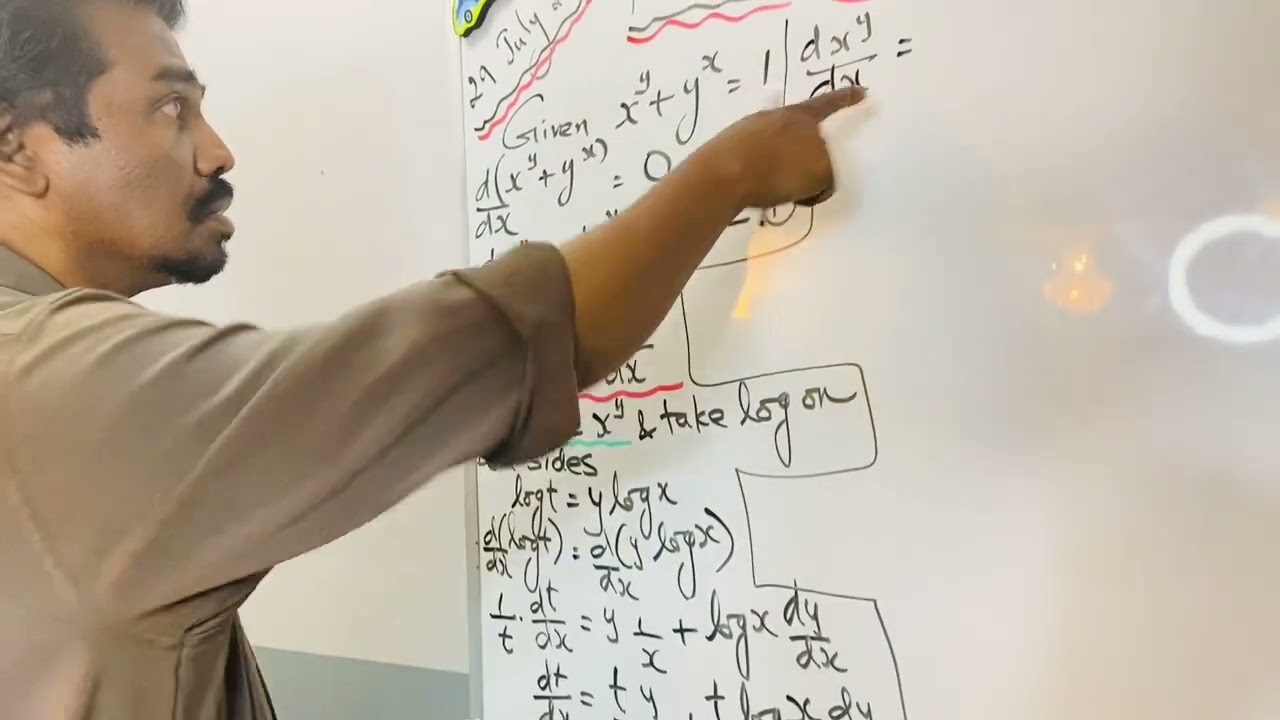 29 July
Given x^y + y^x = 1
d/dx (x^y + y^x) = 0
dx
= x^y & take log on
sides
log t = y log x
d/dx (log t) = d/dx (y log x)
1/t . dt/dx = y 1/x + log x dy/dx
dt/dx = t y + t log x dy
dx^y/dx =